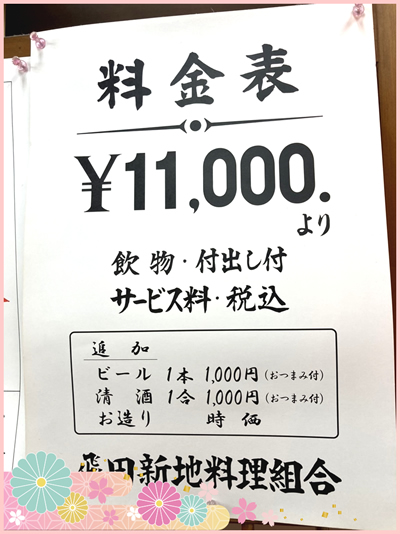 料金表
¥11,000.
より
飲物・付出し付
サービス料・税込
追加
ビール 1本 1,000円(おつまみ付)
清酒 1合 1,000円(おつまみ付)
お造り 時価
飛田新地料理組合